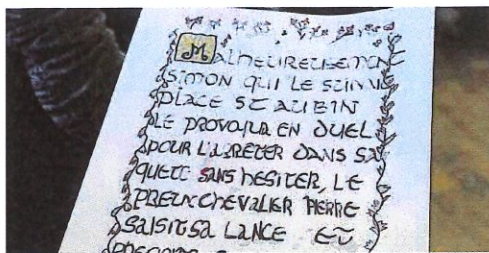 MALHEUREUSEMEN
SIMON QUI LE SUIVI
PLACE ST AUBIN
LE PROVOQUA EN DUEL
POUR L'ARRETER DANS SA
QUETE SANS HESITER, LE
PREUX CHEVALIER PIERRE
SAISIT SA LANCE ET